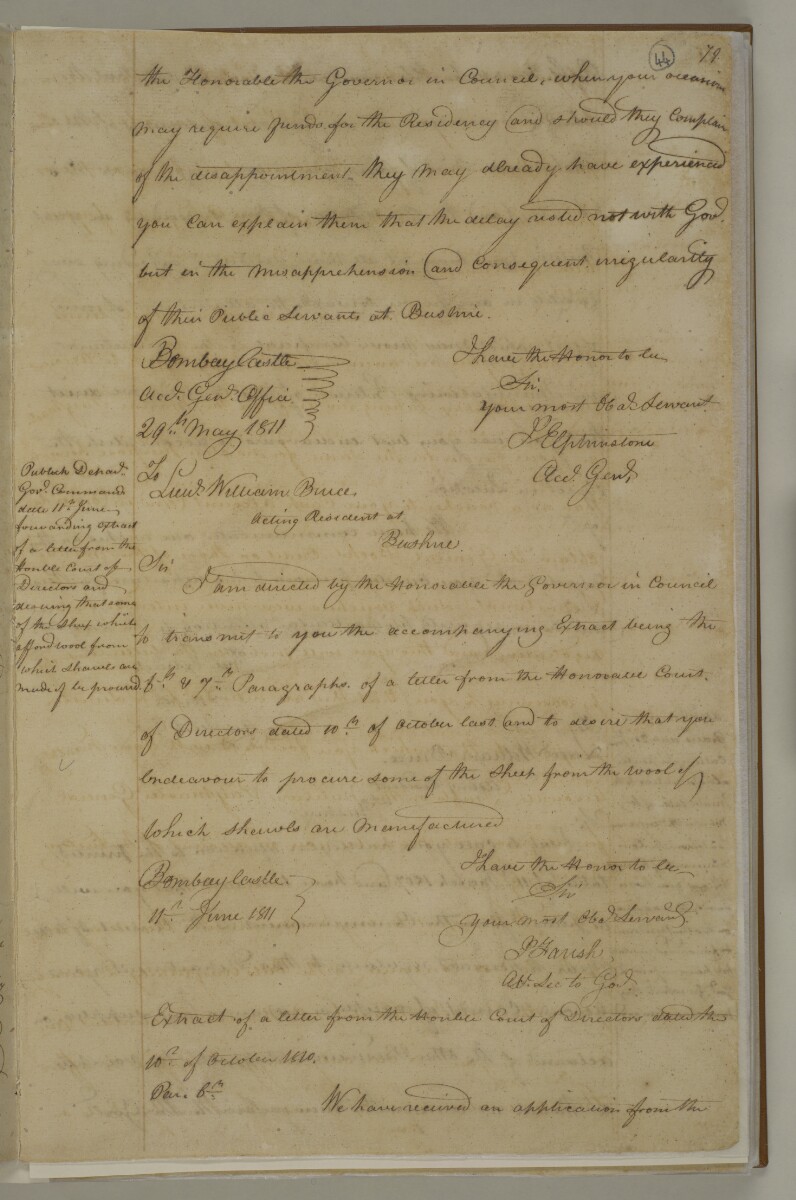 44
79
the Honorable the Governor in Council, when your occasion
may require funds for the Residency and should they Complain
of the disappointment they may already have experienced
you can explain them that the delay rested not with Govt.
but in the misapprehension and consequent irregularity
of their Public Servants at Bushire.
Bombay Castle
Acct. Genl. Office
29th May 1811
I have the Honor to be
Sir
your most Obdt. Servant
Elphinstone
Acct. Genl.
Publick Departt.
Govt. Commands
date 11th June
forwarding extract
of a letter from the
Honble Court of
Directors and
desiring that some
of the sheep which
afford wool from
which shawls are
made of be procured
To
Lieut. William Bruce
Acting Resident at
Bushire
Sir
I am directed by the Honorable the Governor in Council
to transmit to you the accompanying Extract being the
6th & 7th Paragraphs of a letter from the Honorable Court
of Directors dated 10th of October last and to desire that you
endeavour to procure some of the sheep from the wool of
which shawls are manufactured
Bombay Castle
11th June 1811
I have the Honor to be
Sir
your most Obdt. Servant
Farish
Sec to Govt.
Extract of a letter from the Honble Court of Directors dated the
10th of October 1810.
Par. 6th
We have received an application from the